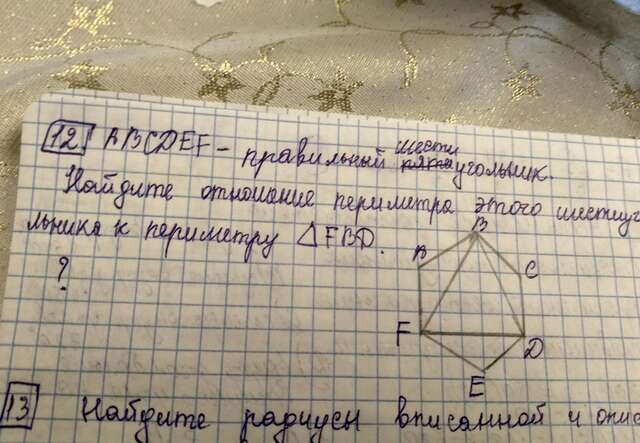 12. ABCDEF - правильный шести угольник.
Найдите отношение периметра этого шестиуг
льника к периметру △FBD.
?
B
A
C
F
D
E
13 Найдите радиусы вписанной и опис